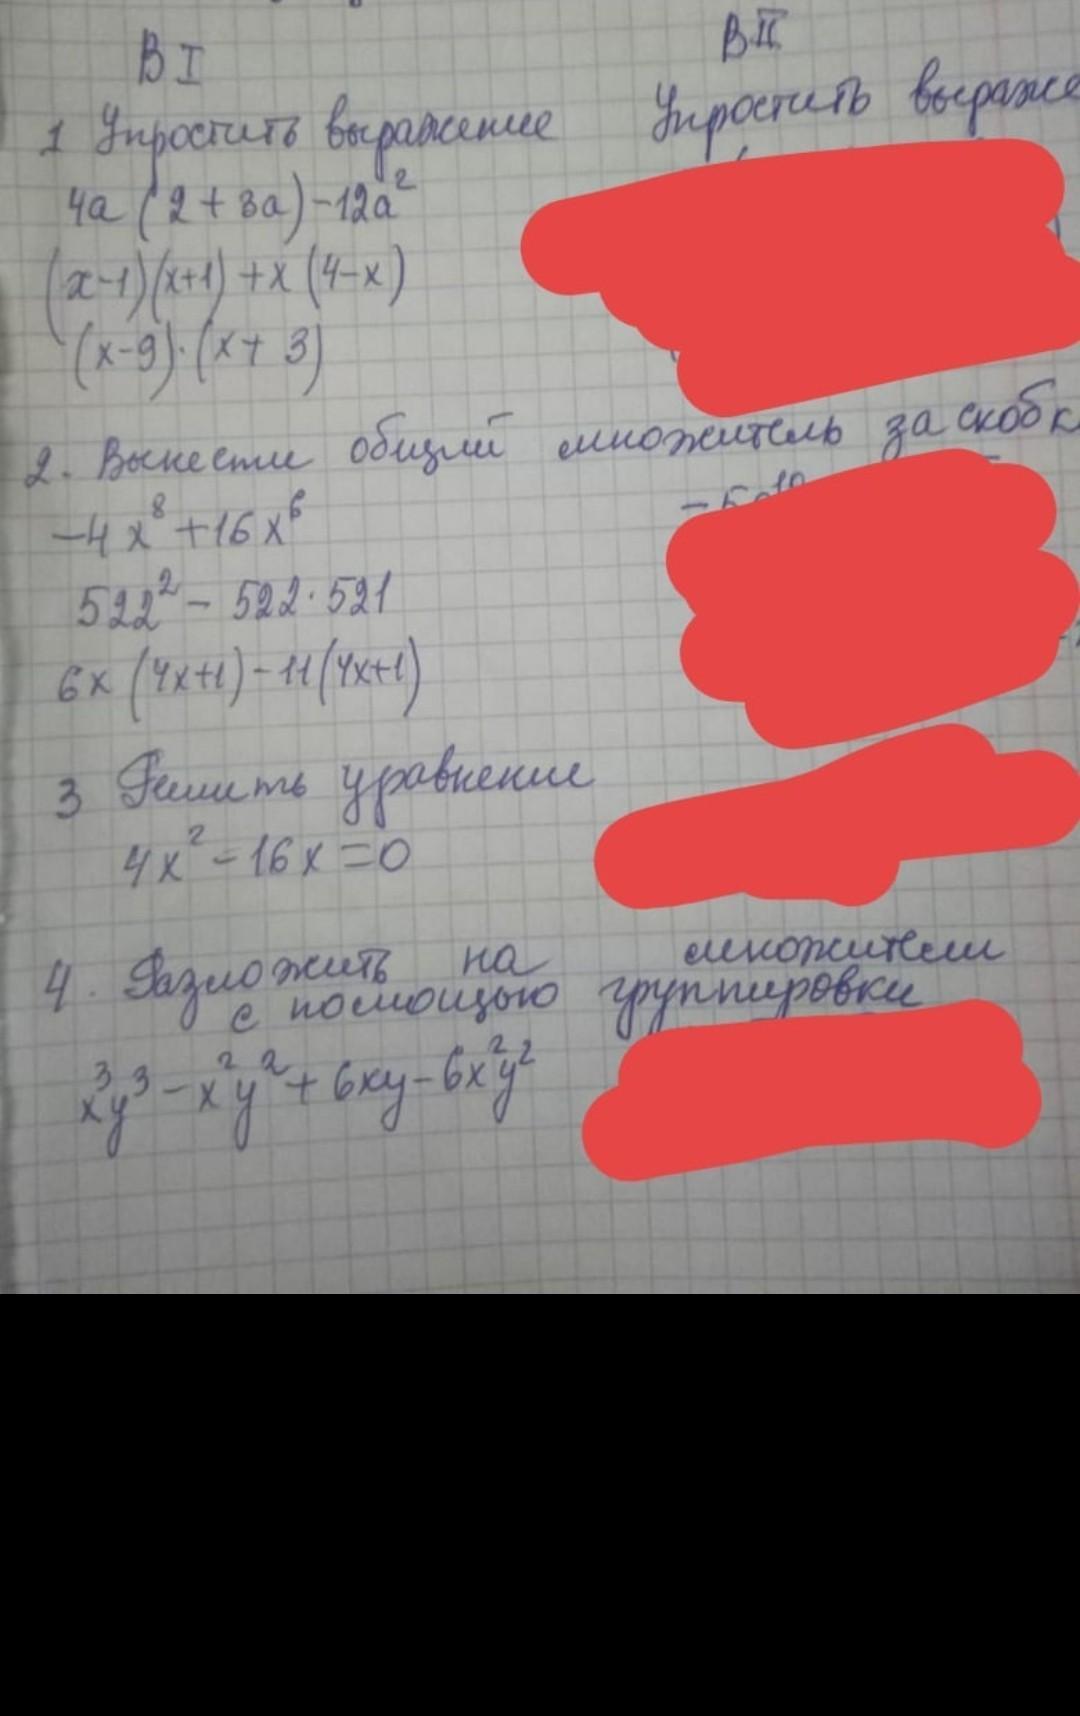 В I
В II
1 Упростить выражение
Упростить
4a(2+3a)-12a²
(x-1)(x+1)+x(4-x)
(x-9)·(x+3)
2. Вынести общий множитель за
-4x⁸+16x⁶
522²-522·521
6x(4x+1)-11(4x+1)
3 Решить уравнение
4x²-16x=0
4. Разложить на множители
с помощью группировки
x³y³-x²y²+6xy-6x²y²